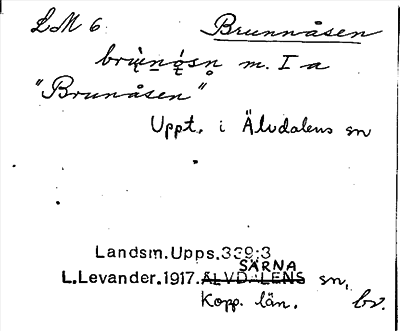 LM 6 Brunnåsen
brùnǫ́sn m. I a
"Brunåsen"
Uppt. i Älvdalens sn
Landsm. Upps. 339:3
SÄRNA
L.Levander.1917. ÄLVDALENS sn,
Kopp. län. bv.